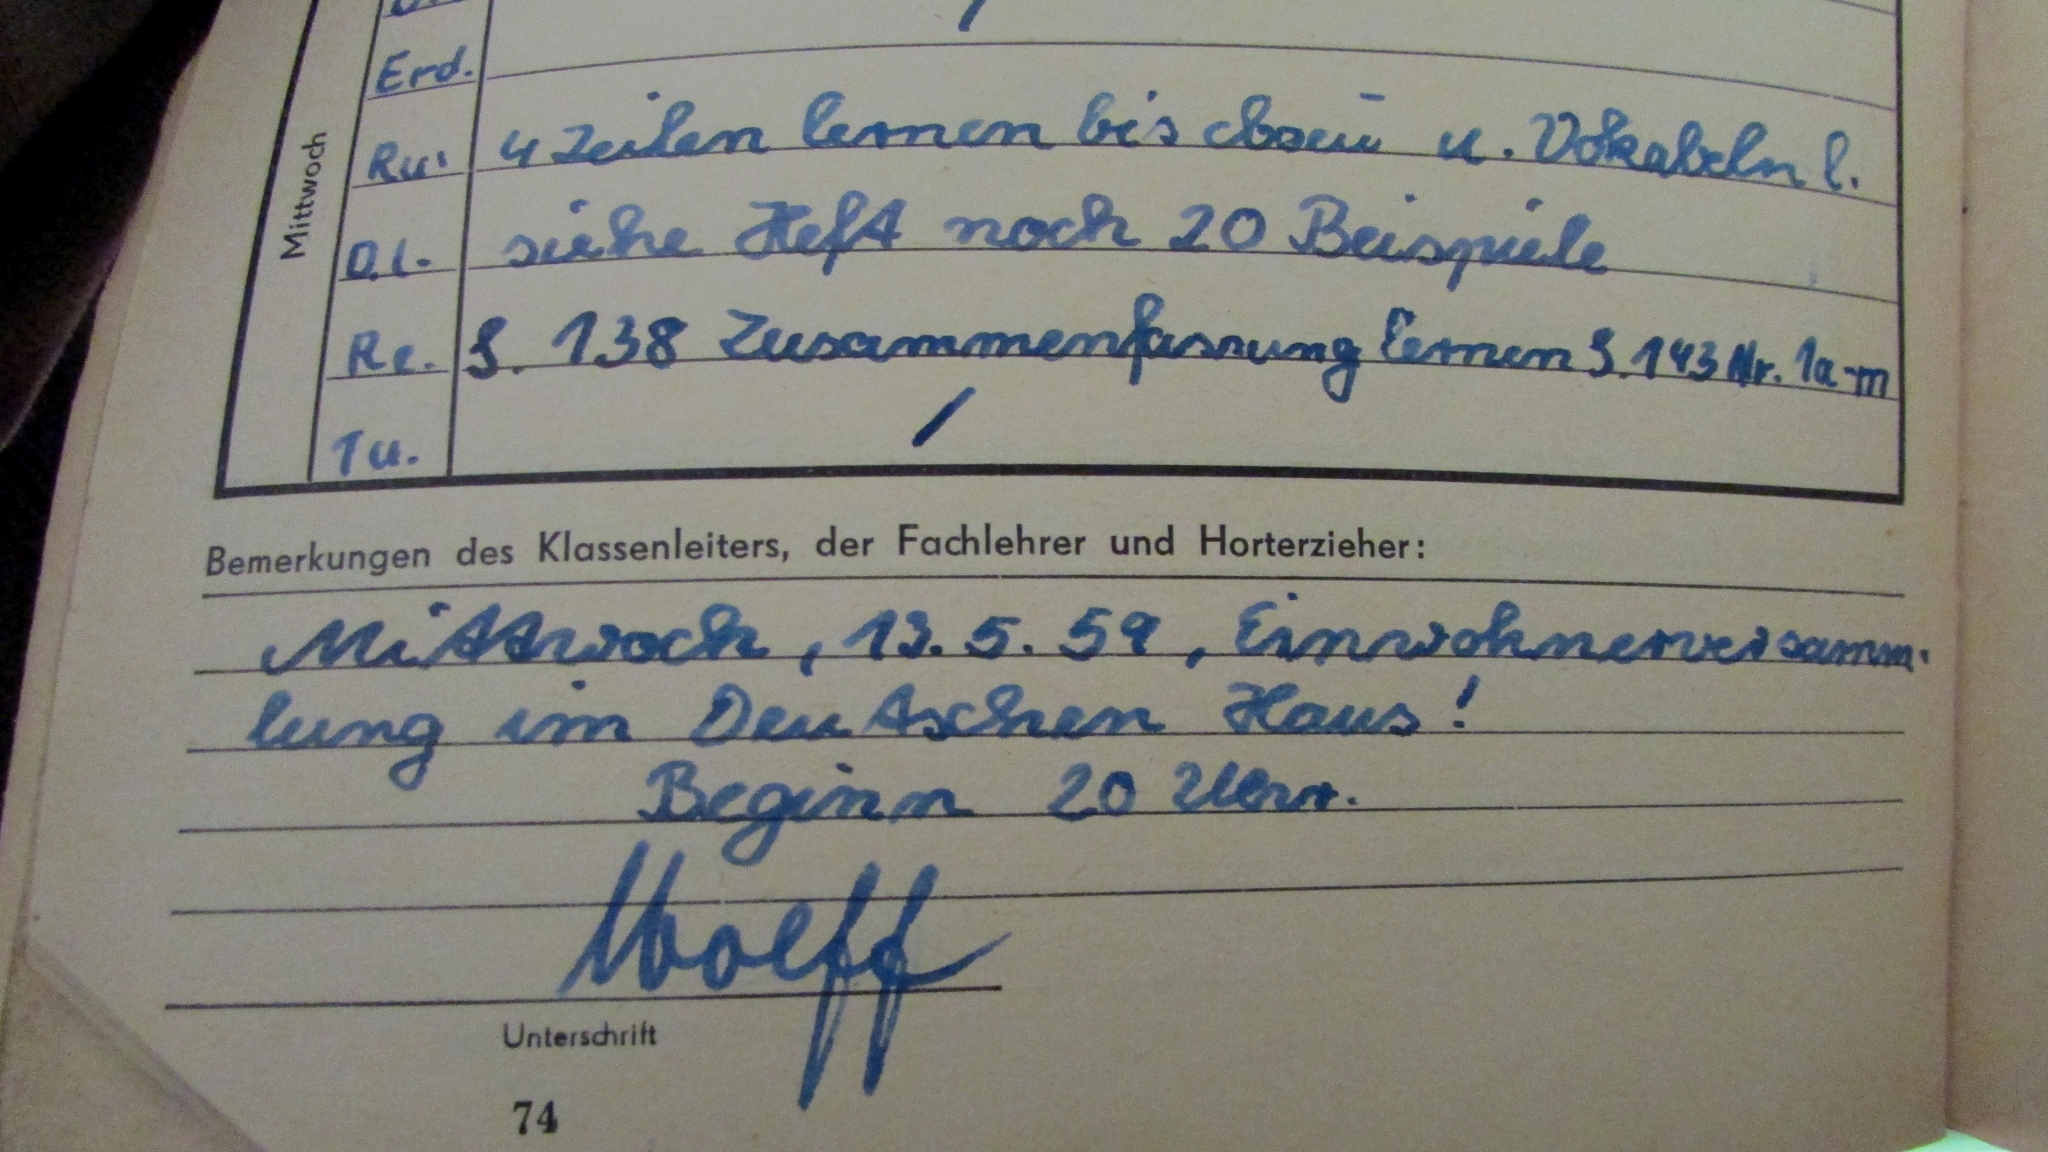 Erd.
Mittwoch
Ru. 4 Zeilen lernen bis u. Vokabeln l.
D.l. siehe Heft noch 20 Beispiele
Re. S. 138 Zusammenfassung lernen S. 143 Nr. 1a-m
Tu. /
Bemerkungen des Klassenleiters, der Fachlehrer und Horterzieher:
Mittwoch, 13.5.59, Einwohnerversamm-
lung im Deutschen Haus!
Beginn 20 Uhr.
Wolff
Unterschrift
74